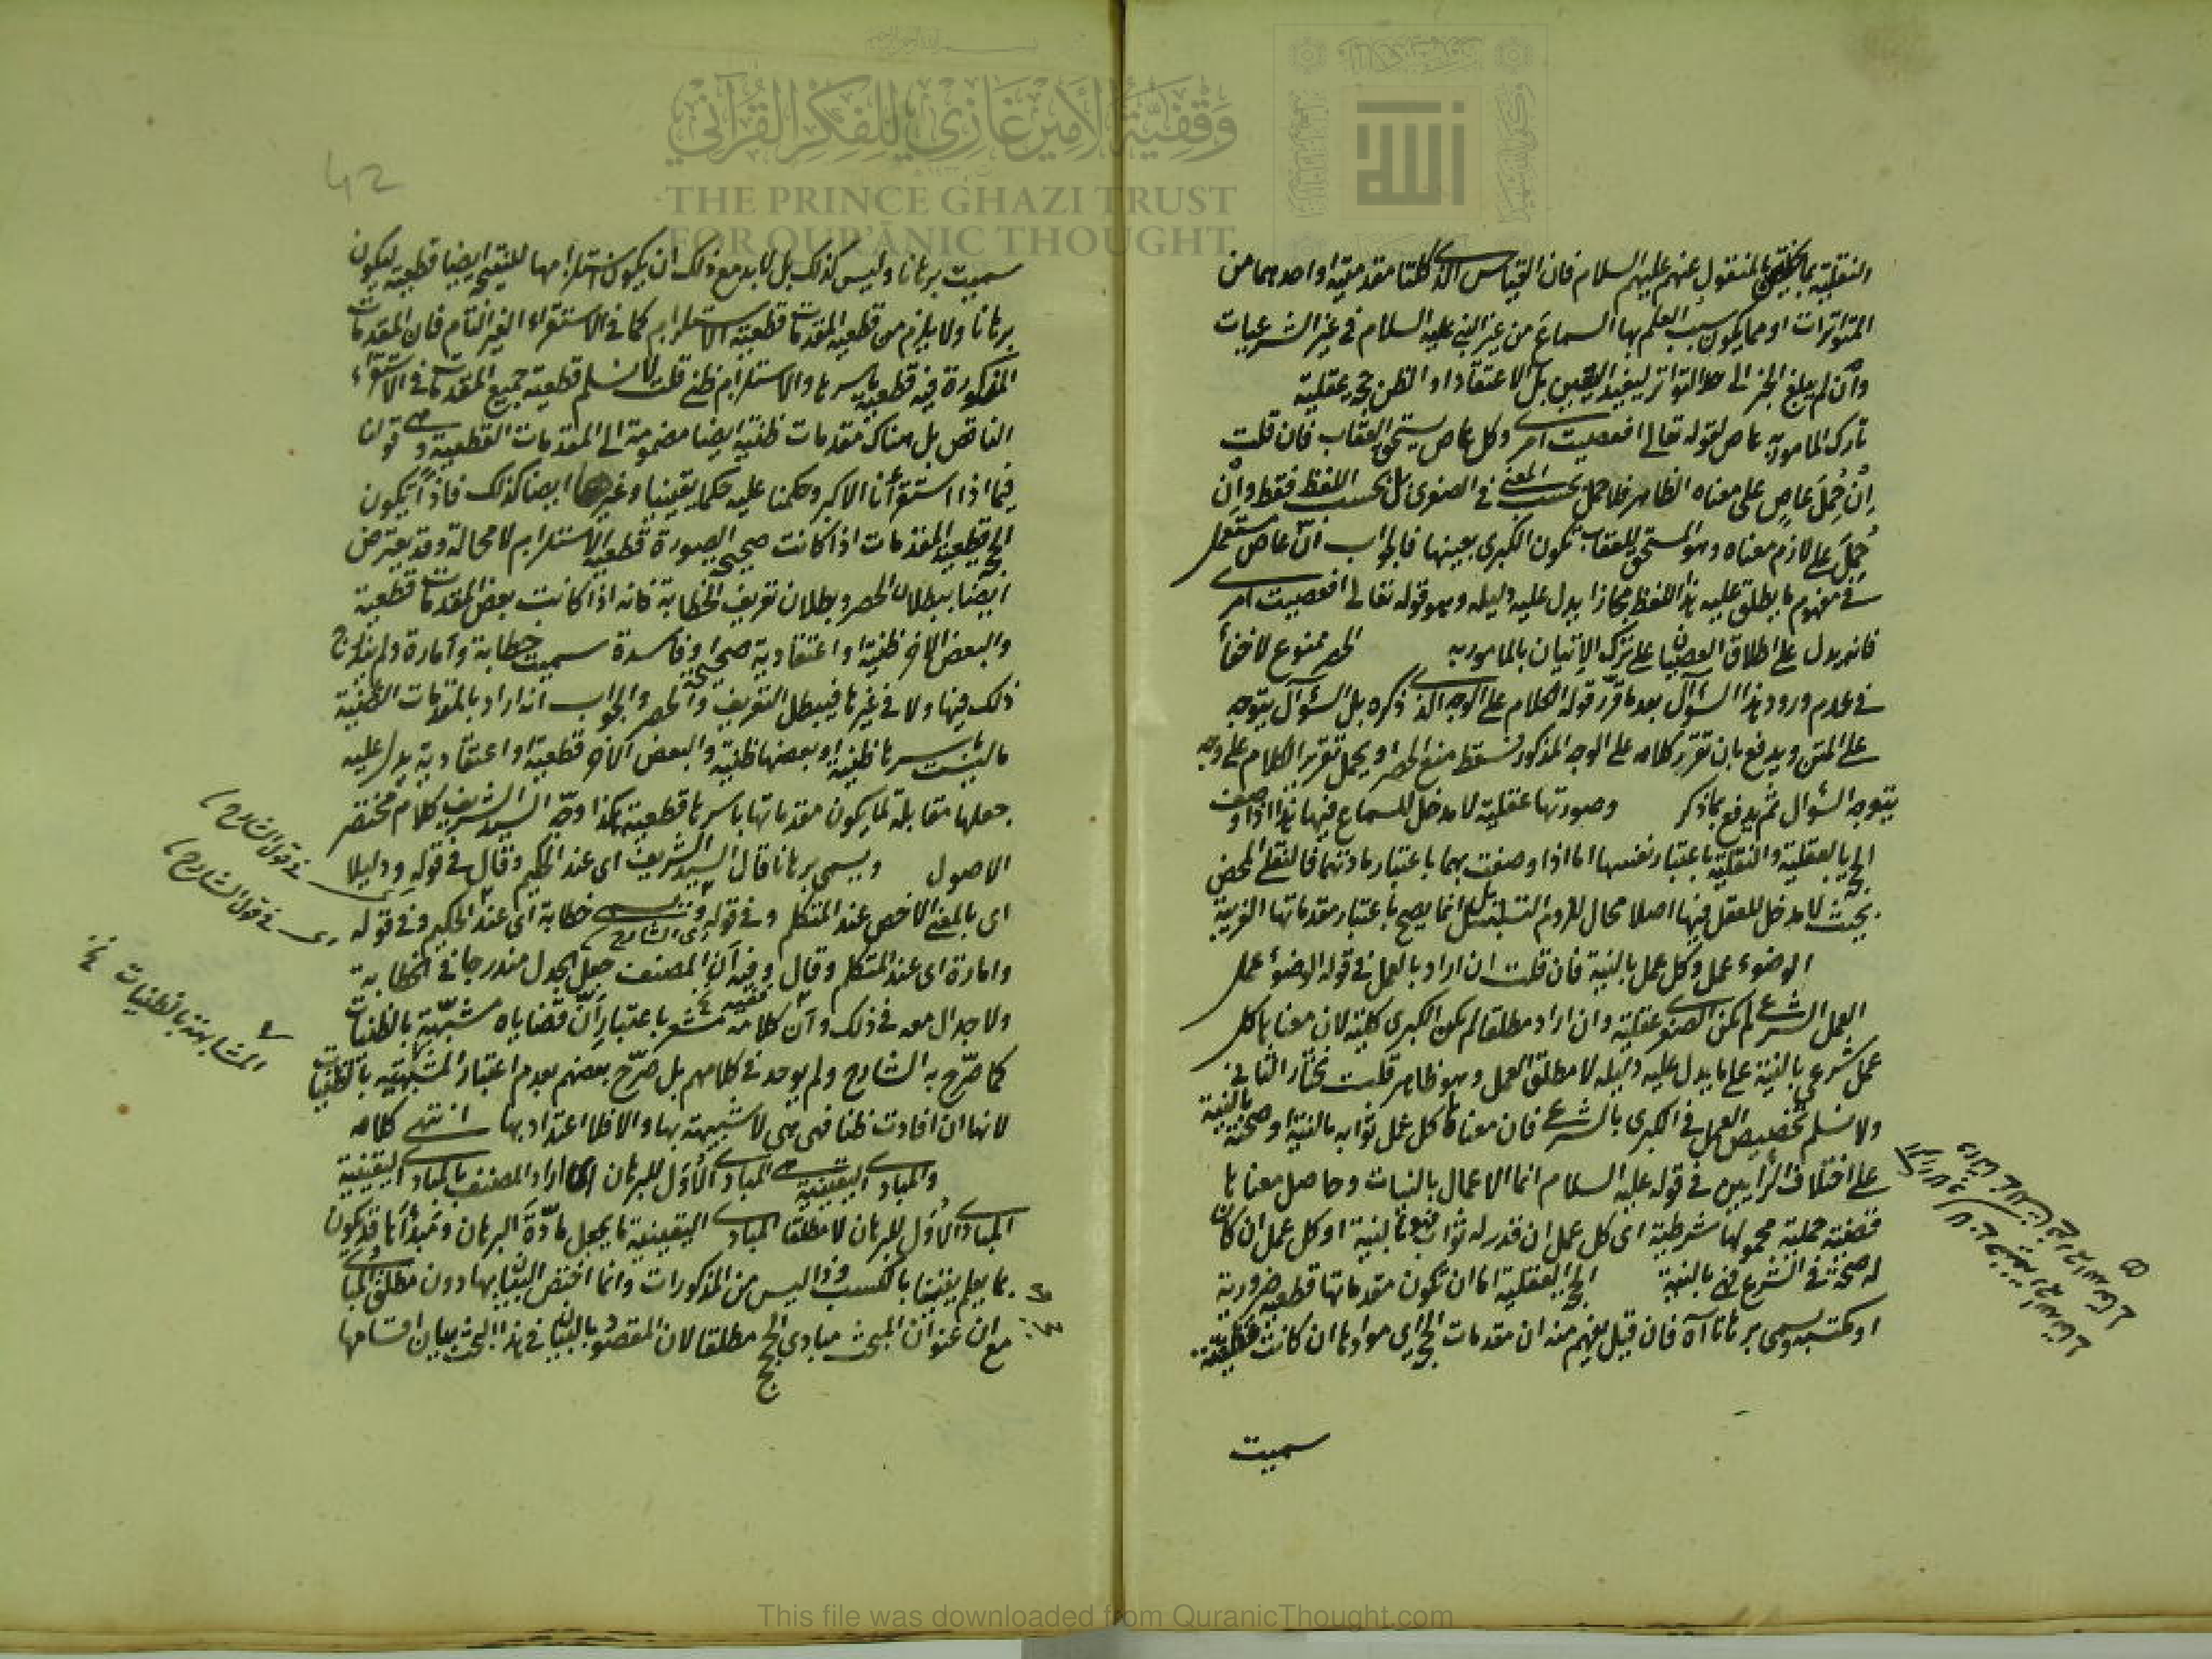 النقلية بما يختص بالمنقول عنهم عليهم السلام فان القياس الذى كلتا مقدمتيه او احدهما من
المتواترات او مما يكون سبب العلم بها السماع من غير النبى عليه السلام فى غير الشرعيات
وان لم يبلغ الخبر الى حد التواتر ليفيد اليقين بل الاعتقاد او الظن حجة عقلية
تارك المأمور به عاص لقوله تعالى افعصيت امرى وكل عاص يستحق العقاب فان قلت
ان حمل عاص على معناه الظاهر فلا حمل بحسب المعنى فى الصغرى بل بحسب اللفظ فقط وان
حمل على لازم معناه وهو المستحق للعقاب تكون الكبرى بعينها فالجواب ان عاص مستعمل
فى مفهوم ما يطلق عليه هذا اللفظ مجازا يدل عليه دليله وهو قوله تعالى افعصيت امرى
فانه يدل على اطلاق العصيان على ترك الاتيان بالمأمور به الحصر ممنوع لا خفأ
فى عدم ورود هذا السؤال بعد ما قرر قوله الكلام على الوجه الذى ذكره بل السؤال يتوجه
على المتن ويدفع بان تقرير كلامه على الوجه المذكور يسقط منع الحصر ويحمل تقرير الكلام على وجه
يتوجه السؤال ثم يدفع بما ذكر وصورتها عقلية لا مدخل للسماع فيها هذا اذا وصف
الحجة بالعقلية والنقلية باعتبار نفسها اما اذا وصفت بهما باعتبار مادتهما فالنقلى المحض
بحيث لا مدخل للعقل فيها اصلا محال للزوم التسلسل بل انما يصح باعتبار مقدماتها القريبة
الوضوء عمل وكل عمل بالنية فان قلت ان اراد بالعمل فى قوله الوضوء عمل
العمل الشرعى لم تكن الصغرى عقلية وان اراد مطلقا لم تكن الكبرى كلية لان معناها كل
عمل شرعى بالنية على ما يدل عليه دليله لا مطلق العمل وهو ظاهر قلت نختار الثانى
ولا نسلم تخصيص العمل فى الكبرى بالشرعى فان معناها كل عمل ثوابه بالنية او صحته بالنية
على اختلاف الرأيين فى قوله عليه السلام انما الاعمال بالنيات وحاصل معناها
قضية حملية محمولها شرطية اى كل عمل ان قدر له ثواب فهو بالنية او كل عمل ان كان
له صحة فى الشرع فهى بالنية الحجة العقلية اما ان تكون مقدماتها قطعية ضرورية
او مكتسبة ويسمى برهانا آه فان قيل يفهم منه ان مقدمات الحجة اى موادها ان كانت قطعية
سميت
42
سميت برهانا وليس كذلك بل لا بد مع ذلك ان يكون استلزامها للنتيجة ايضا قطعية ليكون
برهانا ولا يلزم من قطعية المقدمات قطعية الاستلزام كما فى الاستقراء الغير التام فان المقدمات
المذكورة فيه قطعية باسرها والاستلزام ظنى قلت لا نسلم قطعية جميع المقدمات فى الاستقراء
الناقص بل هناك مقدمات ظنية ايضا مضمومة الى المقدمات القطعية وهى قولنا
فيما اذا استقرأنا الاكبر وحكمنا عليه حكما يقينيا وغيرها ايضا كذلك فاذا يكون
الحجة قطعية المقدمات اذا كانت صحيحة الصورة قطعية الاستلزام لا محالة وقد يعترض
ايضا ببطلان الحصر وبطلان تعريف الخطابة فانه اذا كانت بعض المقدمات قطعية
والبعض الاخر ظنية او اعتقادية صحيحة او فاسدة سميت خطابة وامارة ولم يندرج
ذلك فيها ولا فى غيرها فيبطل التعريف والحصر والجواب انه اراد بالمقدمات الظنية
ما ليست باسرها ظنية او بعضها ظنية والبعض الاخر قطعية او اعتقادية يدل عليه
جعلها مقابلة لما يكون مقدماتها باسرها قطعية هكذا وجه السيد الشريف كلام مختصر
الاصول ويسمى برهانا قال السيد الشريف اى عند الحكيم وقال فى قوله ودليلا
اى بالمعنى الاخص عند المتكلم وفى قوله ويسمى خطابة اى عند الحكيم وفى قوله
وامارة اى عند المتكلم وقال وفيه ان المصنف جعل الجدل مندرجا فى الخطابة
ولا جدال معه فى ذلك وان كلامه مشعر باعتبار ان قضاياه مشبهة بالظنيات
كما صرح به الشارح ولم يوجد فى كلامهم بل صرح بعضهم بعدم اعتبار المشبهة بالظنيات
لانها ان افادت ظنا فهى هى لا شبيهة بها والا فلا اعتداد بها انتهى كلامه
والمبادى اليقينية هى المبادى الاول للبرهان اى اراد المصنف بالمبادى اليقينية
المبادى الاول للبرهان لا مطلقا المبادى اليقينية ما يجعل مادة البرهان ومبدأها قد يكون
مما يعلم يقينا بالكسب وذا ليس من المذكورات وانما اختص البيان بها دون مطلق المبادى
مع ان عنوان المبحث مبادى الحجج مطلقا لان المقصود بالبيان فى هذا البحث بيان اقسامها
اى فى قول الشارح
اى فى قول الشارح
المشابهة بالظنيات نخ